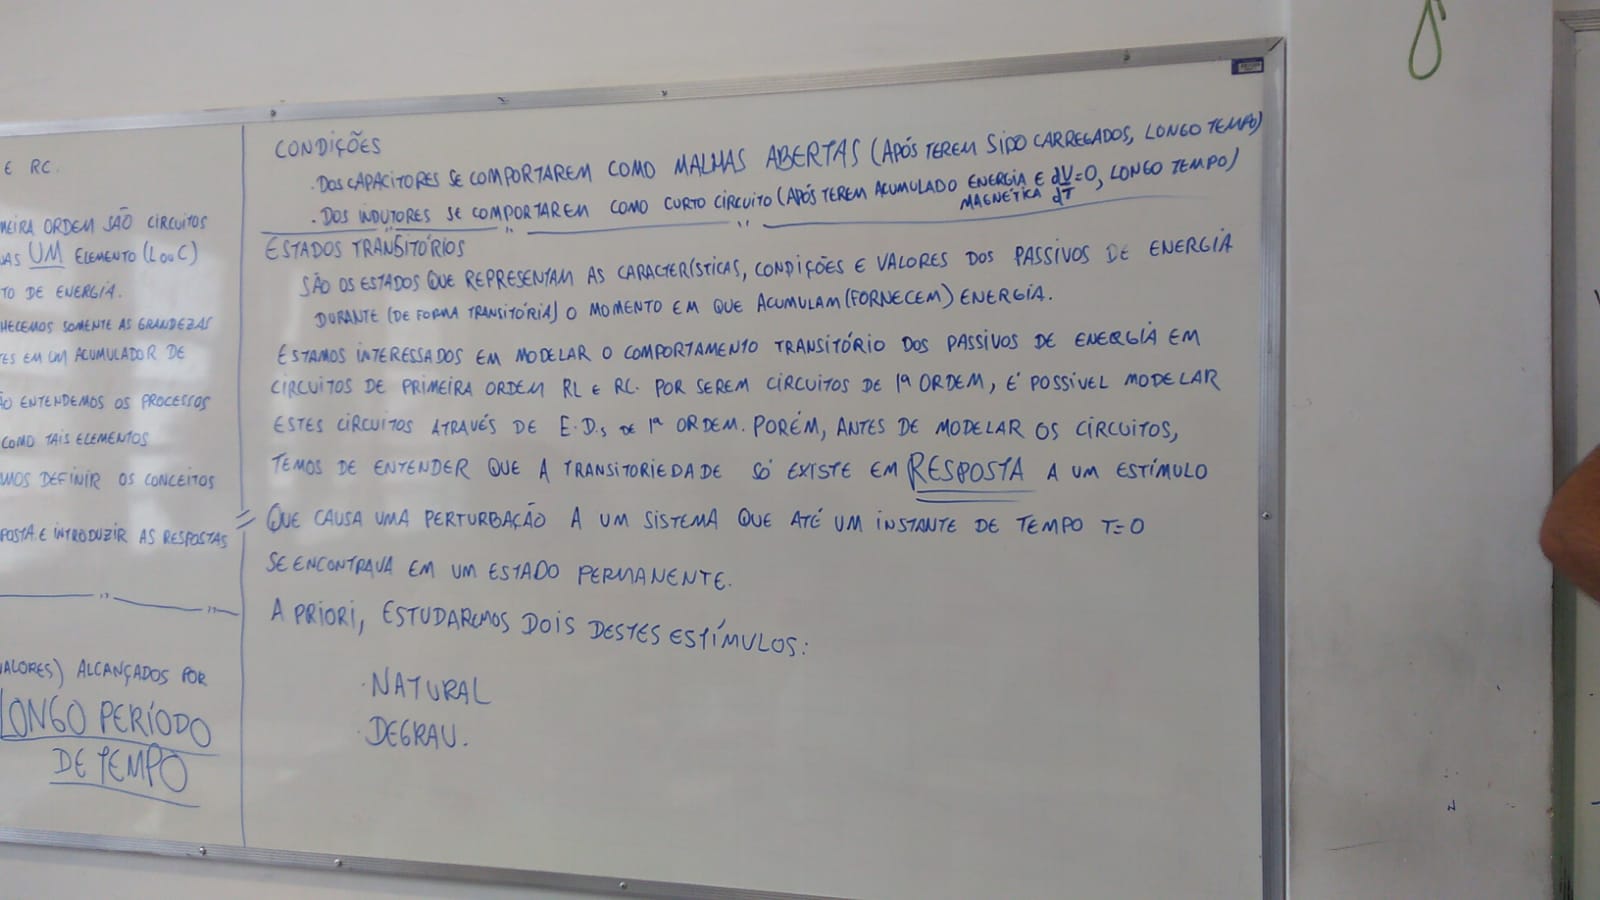 E RC.
MEIRA ORDEM SÃO CIRCUITOS
NAS UM ELEMENTO (L ou C)
TO DE ENERGIA.
HECEMOS SOMENTE AS GRANDEZAS
TES EM UM ACUMULADOR DE
ÃO ENTENDEMOS OS PROCESSOS
COMO TAIS ELEMENTOS
MOS DEFINIR OS CONCEITOS
POSTA E INTRODUZIR AS RESPOSTAS
VALORES) ALCANÇADOS POR
LONGO PERÍODO
DE TEMPO
CONDIÇÕES
. DOS CAPACITORES SE COMPORTAREM COMO MALHAS ABERTAS (APÓS TEREM SIDO CARREGADOS, LONGO TEMPO)
. DOS INDUTORES SE COMPORTAREM COMO CURTO CIRCUITO (APÓS TEREM ACUMULADO ENERGIA MAGNÉTICA E dV/dT=0, LONGO TEMPO)
ESTADOS TRANSITÓRIOS
SÃO OS ESTADOS QUE REPRESENTAM AS CARACTERÍSTICAS, CONDIÇÕES E VALORES DOS PASSIVOS DE ENERGIA
DURANTE (DE FORMA TRANSITÓRIA) O MOMENTO EM QUE ACUMULAM (FORNECEM) ENERGIA.
ESTAMOS INTERESSADOS EM MODELAR O COMPORTAMENTO TRANSITÓRIO DOS PASSIVOS DE ENERGIA EM
CIRCUITOS DE PRIMEIRA ORDEM RL E RC. POR SEREM CIRCUITOS DE 1ª ORDEM, É POSSÍVEL MODELAR
ESTES CIRCUITOS ATRAVÉS DE E.D.s DE 1ª ORDEM. PORÉM, ANTES DE MODELAR OS CIRCUITOS,
TEMOS DE ENTENDER QUE A TRANSITORIEDADE SÓ EXISTE EM RESPOSTA A UM ESTÍMULO
QUE CAUSA UMA PERTURBAÇÃO A UM SISTEMA QUE ATÉ UM INSTANTE DE TEMPO T=0
SE ENCONTRAVA EM UM ESTADO PERMANENTE.
A PRIORI, ESTUDAREMOS DOIS DESTES ESTÍMULOS:
. NATURAL
. DEGRAU.